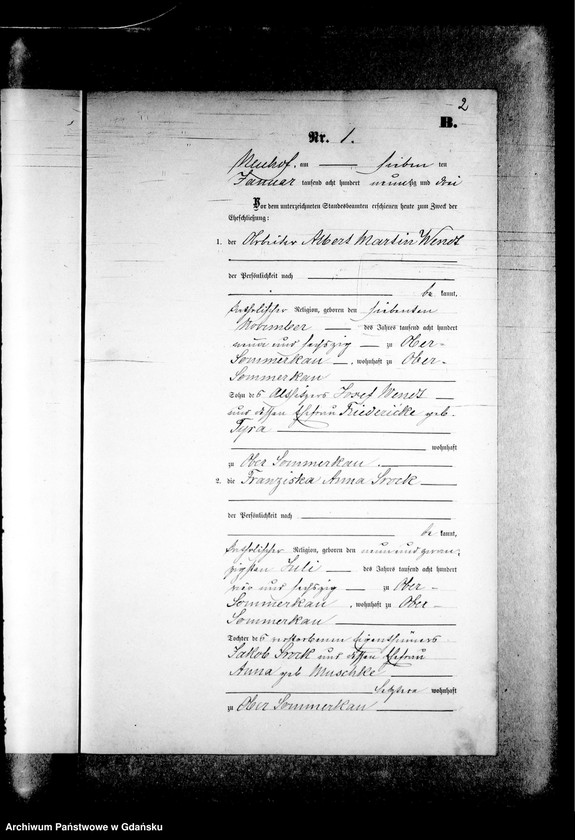 2
B.
Nr. 1.
Neuhof, am — sieben ten
Januar tausend acht hundert neunzig und drei
Vor dem unterzeichneten Standesbeamten erschienen heute zum Zweck der
Eheschließung:
1. der Arbeiter Albert Martin Wendt
der Persönlichkeit nach
be kannt,
katholischer Religion, geboren den siebenten
November — des Jahres tausend acht hundert
neun und sechszig — zu Ober-
Sommerkau —, wohnhaft zu Ober-
Sommerkau
Sohn des Altsitzers Josef Wendt —
und dessen Ehefrau Friedericke geb.
Tyra
wohnhaft
zu Ober Sommerkau.
2. die Franziska Anna Srock
der Persönlichkeit nach
be kannt,
katholischer Religion, geboren den neun und zwan-
zigsten Juli — des Jahres tausend acht hundert
und sechszig — zu Ober-
Sommerkau, wohnhaft zu Ober-
Sommerkau
Tochter des verstorbenen Eigenthümers
Jakob Srock und dessen Ehefrau
Anna geb. Muschke
letztere wohnhaft
zu Ober Sommerkau
Archiwum Państwowe w Gdańsku